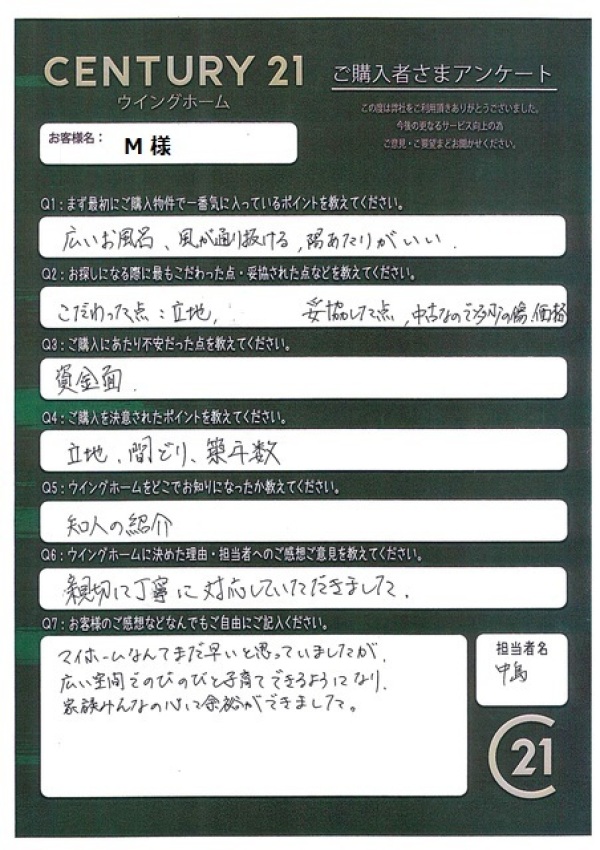 CENTURY 21
ウイングホーム
ご購入者さまアンケート
この度は弊社をご利用頂きありがとうございました。
今後の更なるサービス向上の為
ご意見・ご要望をお聞かせください。
お客様名： M 様
Q1：まず最初にご購入物件で一番気に入っているポイントを教えてください。
広いお風呂、風が通り抜ける、陽あたりがいい.
Q2：お探しになる際に最もこだわった点・妥協された点などを教えてください。
こだわった点：立地, 妥協した点, 中古なので多少の傷.価格
Q3：ご購入にあたり不安だった点を教えてください。
資金面.
Q4：ご購入を決意されたポイントを教えてください。
立地、間どり、築年数
Q5：ウイングホームをどこでお知りになったか教えてください。
知人の紹介
Q6：ウイングホームに決めた理由・担当者へのご感想ご意見を教えてください。
親切に丁寧に対応していただきました.
Q7：お客様のご感想などなんでもご自由にご記入ください。
マイホームなんてまだ早いと思っていましたが、
広い空間でのびのびと子育てできるようになり、
家族みんなの心に余裕ができました。
担当者名
中島
21